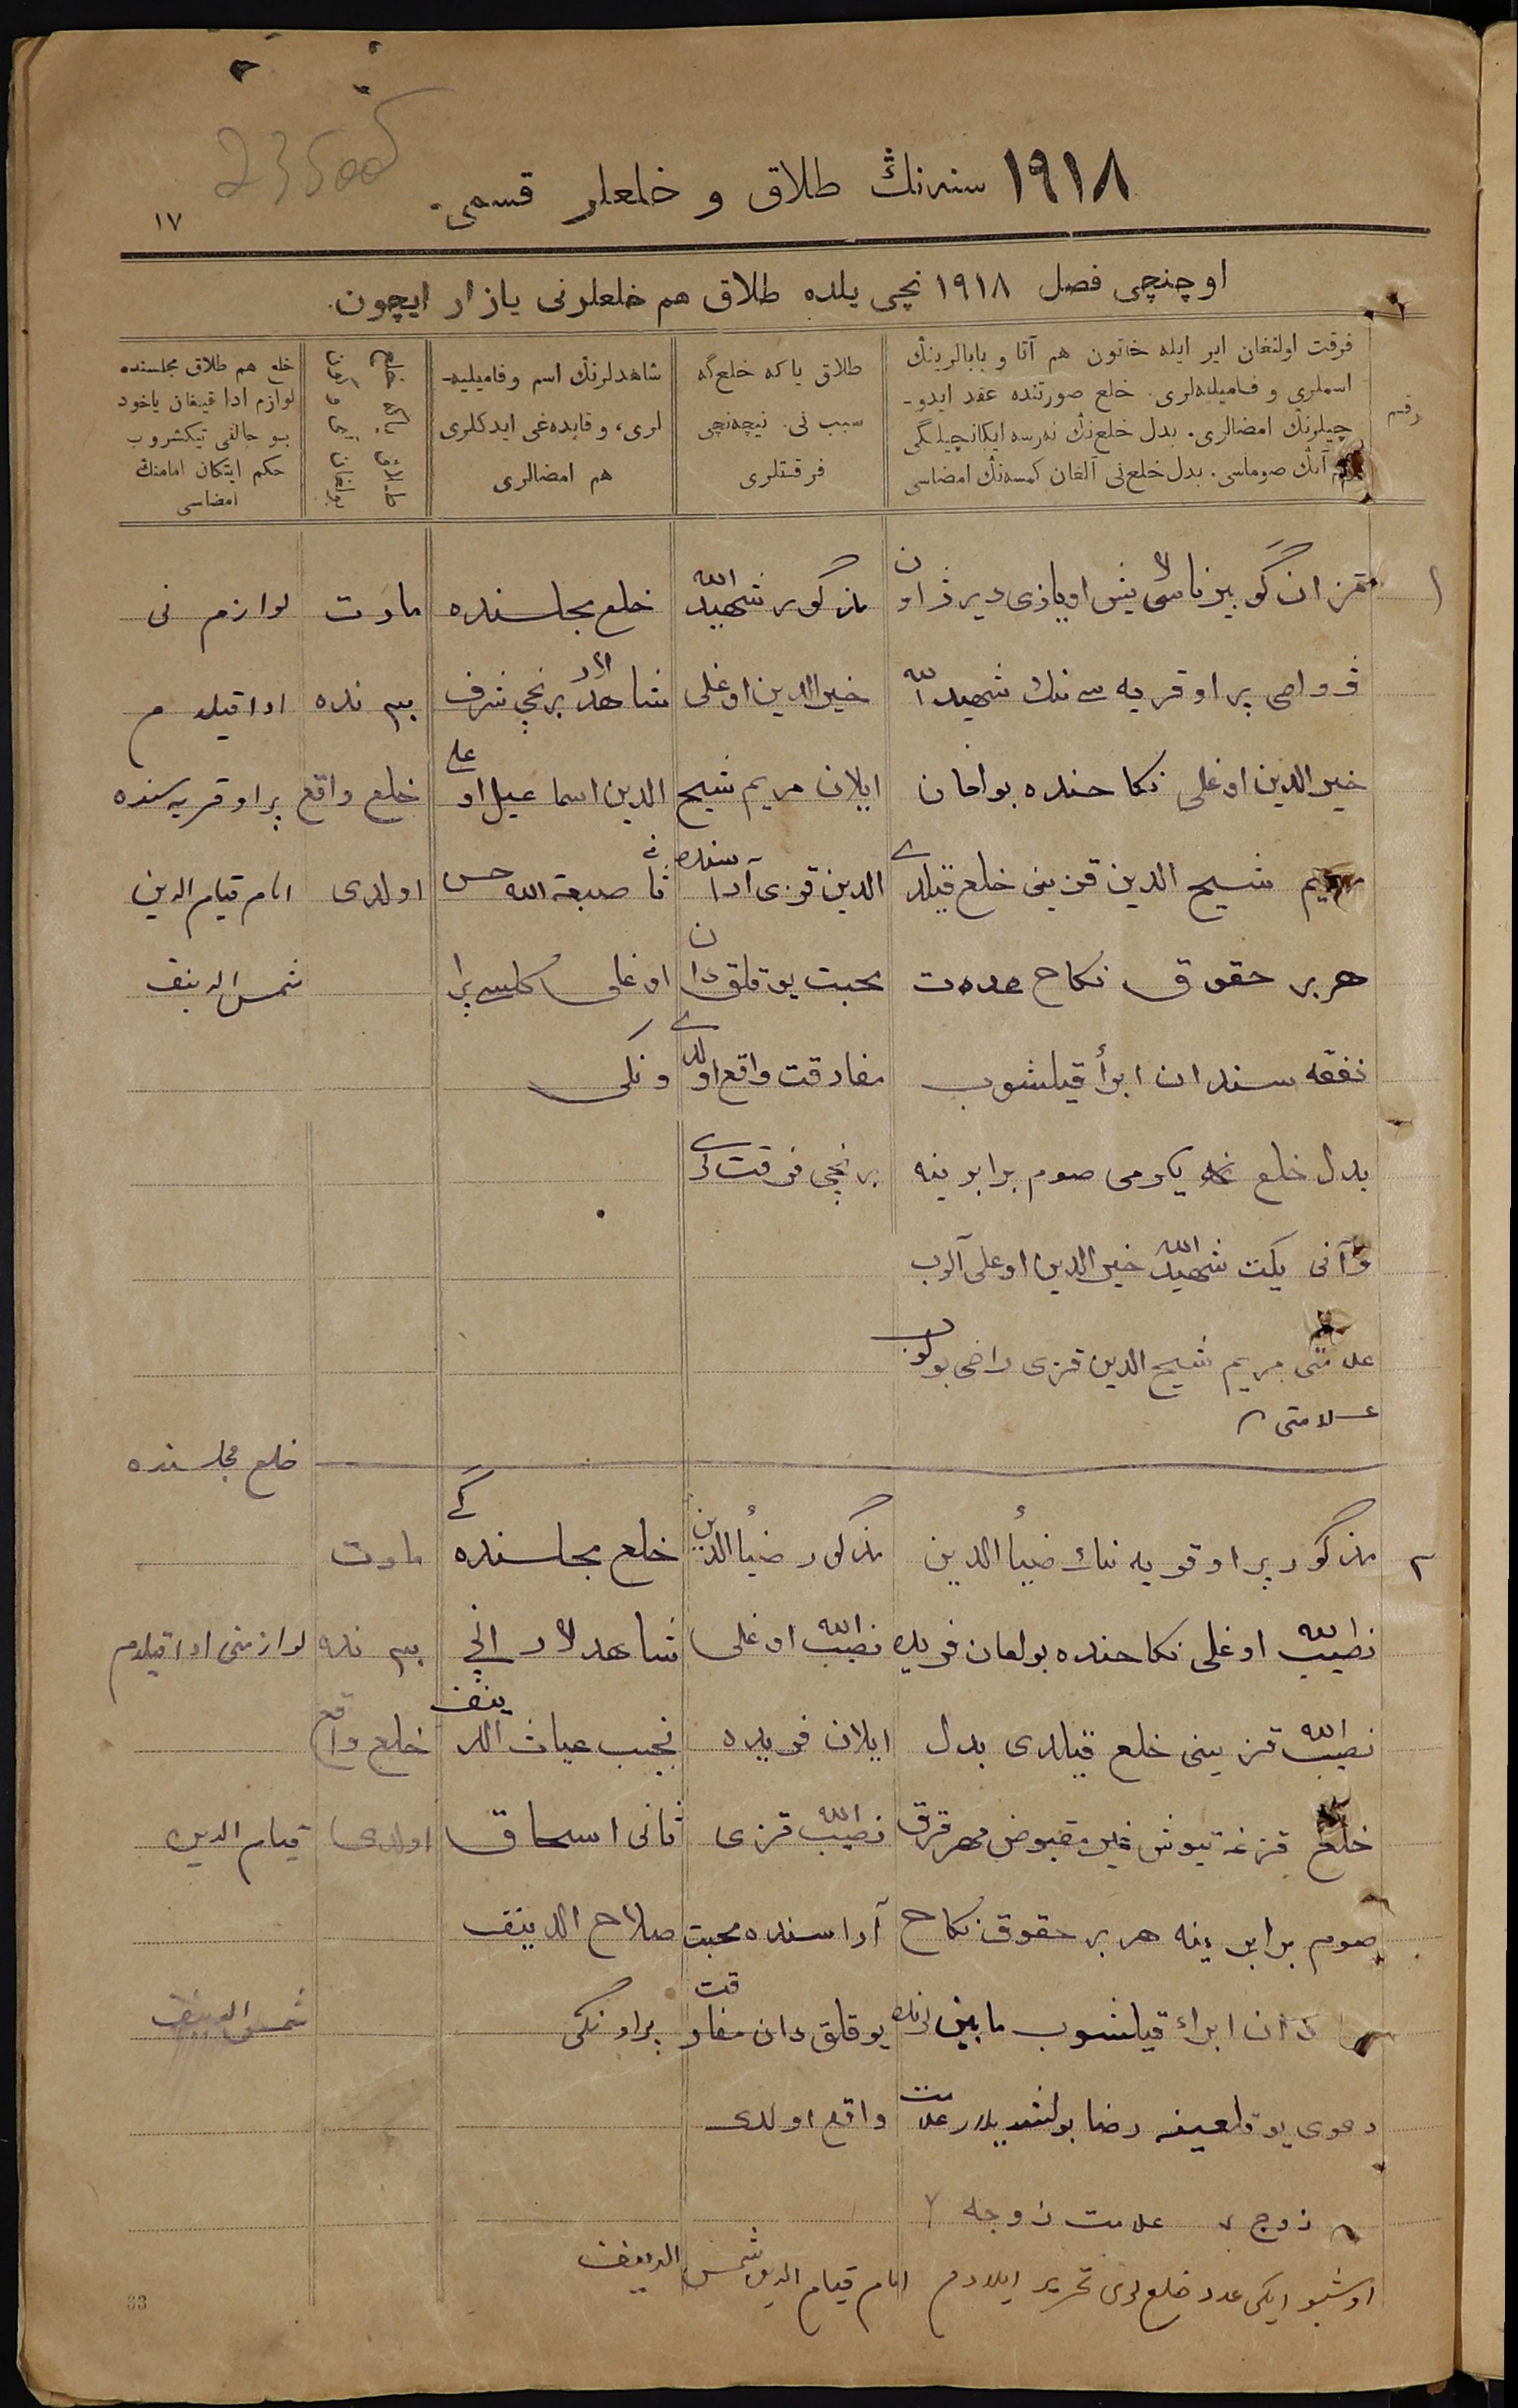 23500
١٩١٨ سنه‌نڭ طلاق و خلعلر قسمی.
١٧
اوچنچی فصل ١٩١٨ نچی یلده طلاق هم خلعلرنی یازار ایچون.
رقم
فرقت اولنغان ایر ایله خاتون هم آتا و بابالرینڭ
اسملری و فامیلیه‌لری. خلع صورتنده عقد ایدو-
چیلرنڭ امضالری. بدل خلع‌نڭ نه‌رسه ایکانچیلگی
هم آنڭ صوماسی. بدل خلع‌نی آلغان کمسه‌نڭ امضاسی
طلاق یا که خلع‌گه
سبب نی. نیچه‌نچی
فرقتلری
شاهدلرنڭ اسم وفامیلیه-
لری، و قایده‌غی ایدکلری
هم امضالری
طلاق یا که خلع
خلع هم طلاق مجلسنده
لوازم ادا قیلغان یاخود
بو حالنی تیکشروب
حکم ایتکان امامنڭ
امضاسی
١
قزان گوبیرناسی نیڭ اویازی
پراو قریه سی ننك شهید الله
خیرالدین اوغلی نکاحنده بولغان
مریم شیح الدین قزینی خلع قیلدی
هر بر حقوق نکاح عدت
نفقه سندان ابرأ قیلشوب
بدل خلع یکرمی صوم برابرینه
شهید الله خیرالدین اوغلی آلوب
علامتی مریم شیح الدین قزی راضی بولوب
علامتی
مذکور شهید الله
خیرالدین اوغلی
ایلان مریم شیح
الدین قزی آراسنده
محبت یوقلق دان
مفارقت واقع اولدی
برنچی فرقت لری
خلع مجلسنده
شاهدلار برنچی شرف
الدین اسماعیل اوغلی
ثانی صبغة الله حسن
اوغلی
مارت
یسم نده
خلع واقع
اولدی
لوازم نی
ادا قیلدم
پراو قریه سنده
امام قیام الدین
شمس الدینف
٢
مذکور پراو قریه ننك ضیأ الدین
نصیب الله اوغلی نکاحنده بولغان فریده
نصیب الله قزینی خلع قیلدی بدل
خلع قزغه تیوش غیر مقبوض مهر قرق
صوم برابرینه هر بر حقوق نکاح
دان ابراء قیلشوب مابین لرنده
دعوی یوقلغینه رضا بولشدیلار علامت
زوج علامت زوجه
مذکور ضیأ الدین
نصیب الله اوغلی
ایلان فریده
نصیب الله قزی
آراسنده محبت
یوقلق دان مفارقت
واقع اولدی
خلع مجلسنده گی
شاهدلار
نجیب غیاث الدینف
ثانی اسحاق
صلاح الدینف
پراونکی
مارت
یسم نده
خلع واقع
اولدی
خلع مجلسنده
لوازمنی ادا قیلدم
قیام الدین
شمس الدینف
اوشبو ایکی عدد خلع لری تحریر ایلادم امام قیام الدین شمس الدینف
33